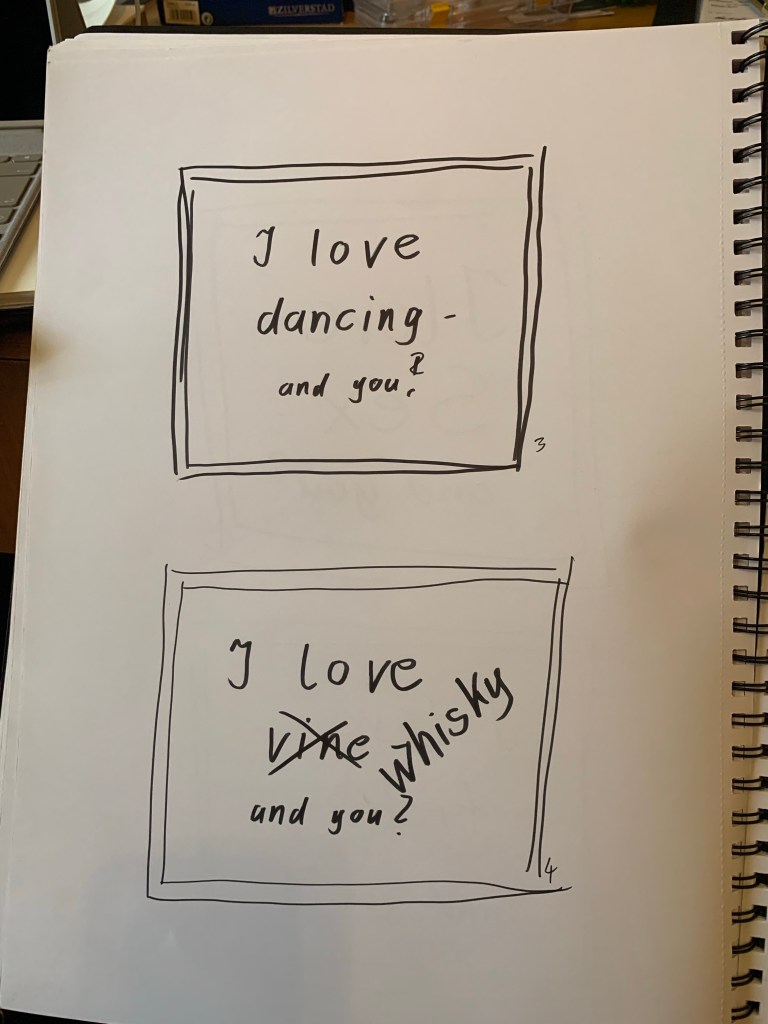 ZILVERSTAD
I love
dancing -
and you?
3
I love
vine whisky
and you?
4